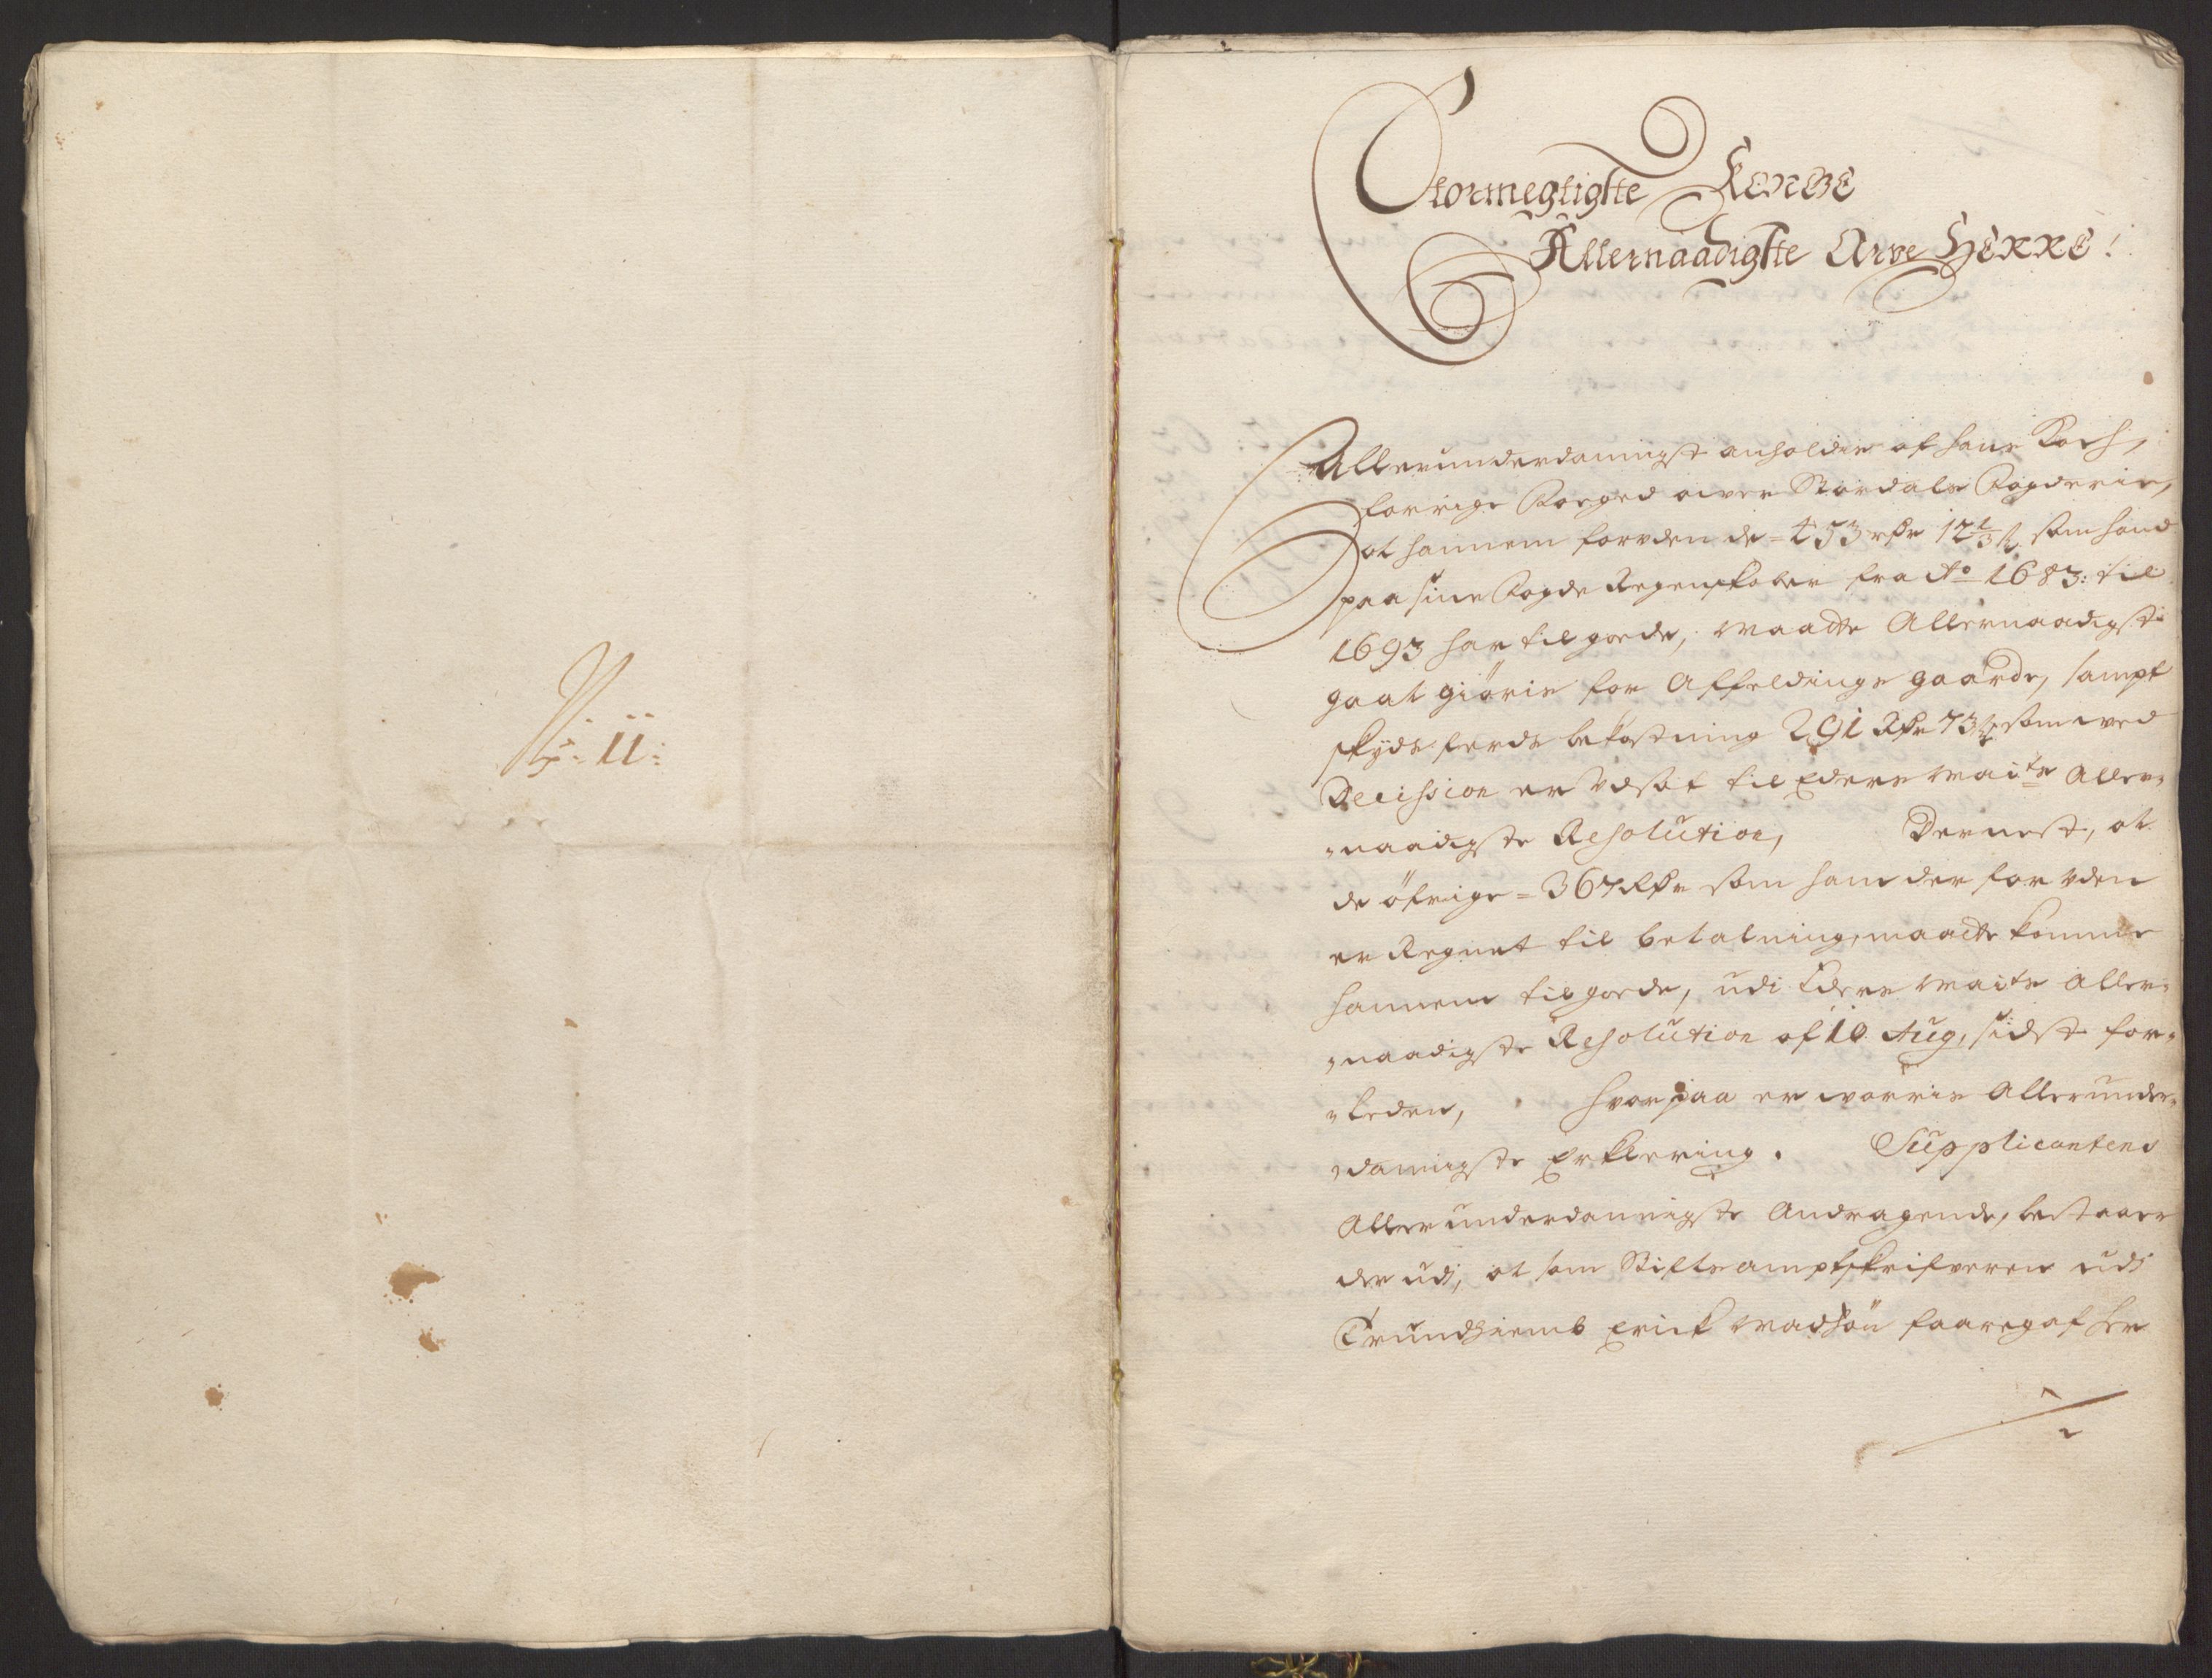 N: 11:
Stormegtigste Konge
Allernaadigste Arve Herre!
Allerunderdanigst anholder af Hans Koch,
forrige Foeged over Stördals Fogderie,
at hannem foruden de = 453 rdr 12 1/3 s som hand
paa sine Fogde Regenskaber fra Ao 1683: til
1693 har til gode, maatte Allernaadigst
gaat giöris for Affeldings gaarde, sampt
skyds ferds bekostning 291 Rdr 73 s som ved
Decission er Udsat til Eders Maits Aller„
„naadigste Resolution, Dernest, at
de öfrige = 367 Rdr som ham der foruden
er Regnet til betalning, maatte komme
hannem til gode, udi Eders Maits Aller„
„naadigste Resolution af 10 Aug, sidst for„
„leden, hvorpaa er voris Allerunder„
„danigste Erklering. Supplicantens
Allerunderdannigste Andragende, bestaar
der udi, at som Stiftsamptskrifveren udi
Trundhiemb Erick Madsön foaregaf her